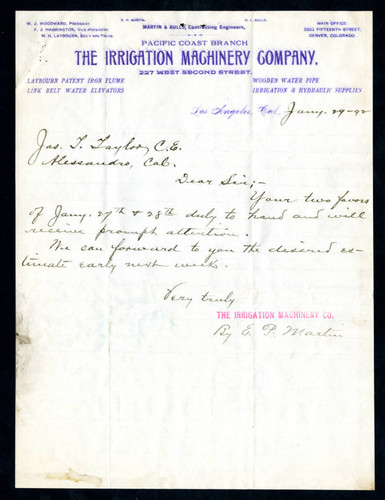 W. J. WOODWARD, President.
F. J. HARRINGTON, Vice-President
W. H. LAYBOURN, Sec'y and Treas.
E. P. MARTIN.
MARTIN & BULLS, Contracting Engineers,
MAIN OFFICE:
FIFTEENTH STREET,
DENVER, COLORADO.
PACIFIC COAST BRANCH
THE IRRIGATION MACHINERY COMPANY,
227 WEST SECOND STREET.
LAYBOURN PATENT IRON FLUME
LINK BELT WATER ELEVATORS
WOODEN WATER PIPE
IRRIGATION & HYDRAULIC SUPPLIES
Los Angeles, Cal. Jany. 29-92
Jas. T. Taylor, C.E.
Alessandro, Cal.
Dear Sir;-
Your two favors
of Jany. 27th & 28th duly to hand and will
receive prompt attention.
We can forward to you the desired es-
timate early next week.
Very truly
THE IRRIGATION MACHINERY CO.
By E. P. Martin